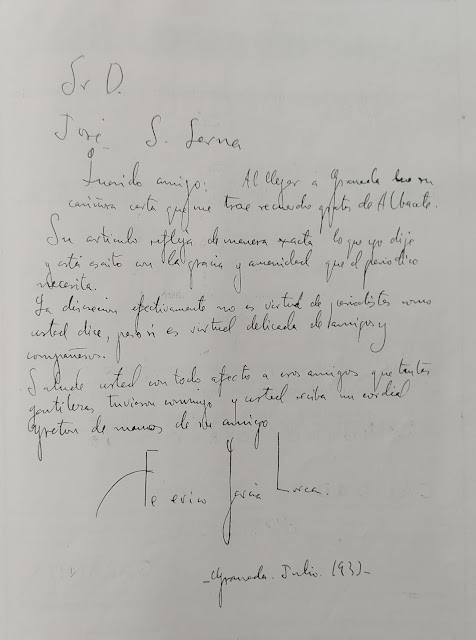 Sr D.
José S. Serna
Querido amigo: Al llegar a Granada leo su
cariñosa carta que me trae recuerdo gratos de Albacete.
Su artículo refleja de manera exacta lo que yo dije
y está escrito con la gracia y amenidad que el periodico
necesita.
La discrecion efectivamente no es virtud de periodistas como
usted dice, pero si es virtud delicada de amigos y
compañeros.
Salude usted con todo afecto a esos amigos que tantas
gentilezas tuvieron conmigo y usted reciba un cordial
apreton de manos de su amigo
Federico García Lorca.
_Granada. Julio.